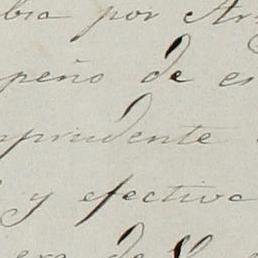 bra por Ar
peño de es
prudente
y efectiva
era de